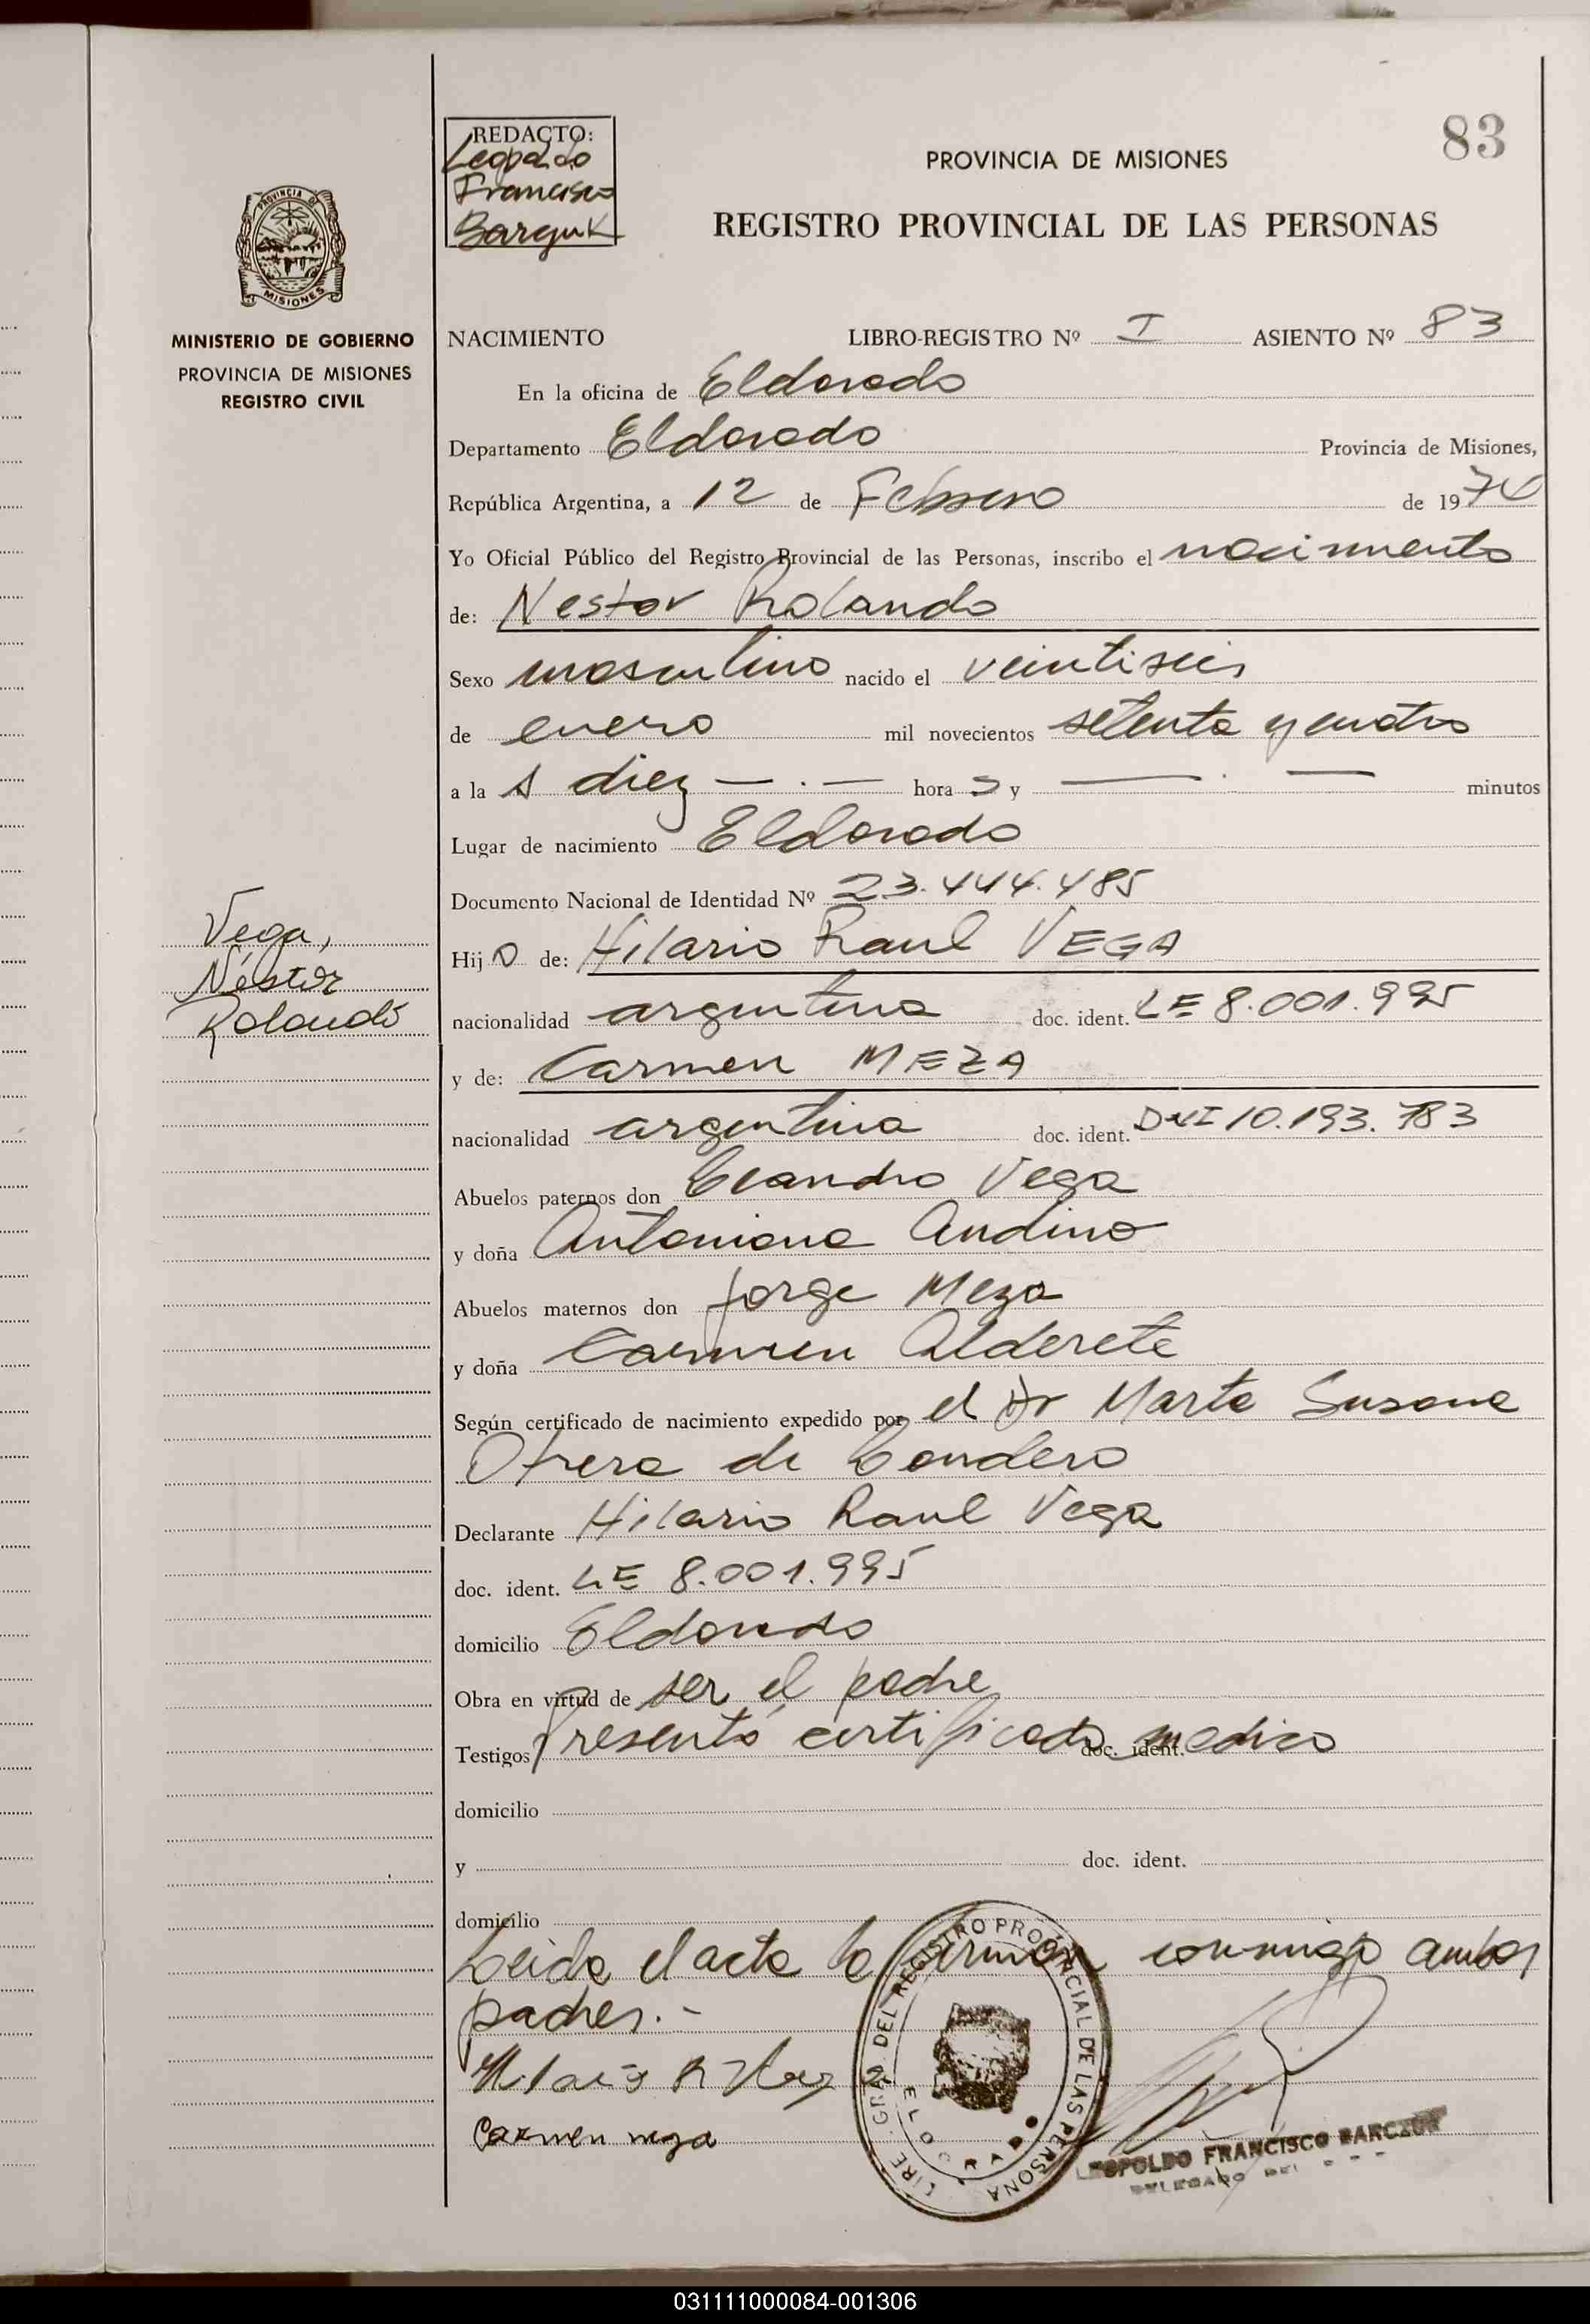 83
REDACTO:
Leopoldo
Francisco
Barczuk
PROVINCIA DE MISIONES
REGISTRO PROVINCIAL DE LAS PERSONAS
PROVINCIA DE
MISIONES
MINISTERIO DE GOBIERNO
PROVINCIA DE MISIONES
REGISTRO CIVIL
NACIMIENTO LIBRO-REGISTRO Nº I ASIENTO Nº 83
En la oficina de Eldorado
Departamento Eldorado Provincia de Misiones,
República Argentina, a 12 de Febrero de 1974
Yo Oficial Público del Registro Provincial de las Personas, inscribo el nacimiento
de: Nestor Rolando
Sexo masculino nacido el veintiseis
de enero mil novecientos setenta y cuatro
a las diez — . — horas y — . — minutos
Lugar de nacimiento Eldorado
Documento Nacional de Identidad Nº 23.444.485
Vega,
Néstor
Rolando
Hijo de: Hilario Raul VEGA
nacionalidad argentina doc. ident. LE 8.001.995
y de: Carmen MEZA
nacionalidad argentina doc. ident. DNI 10.193.783
Abuelos paternos don Leandro Vega
y doña Antoniana Andino
Abuelos maternos don Jorge Meza
y doña Carmen Alderete
Según certificado de nacimiento expedido por el Dr Marta Susana
Otrera de Londero
Declarante Hilario Raul Vega
doc. ident. LE 8.001.995
domicilio Eldorado
Obra en virtud de ser el padre
Testigos Presentó certificado medico doc. ident.
domicilio
y doc. ident.
domicilio
Leida el acta la firman conmigo ambos
padres.-
Carmen meza
DEL REGISTRO PROVINCIAL DE LAS PERSONA
ELDORADO
LEOPOLDO FRANCISCO BARCZUK
DELEGADO
031111000084-001306